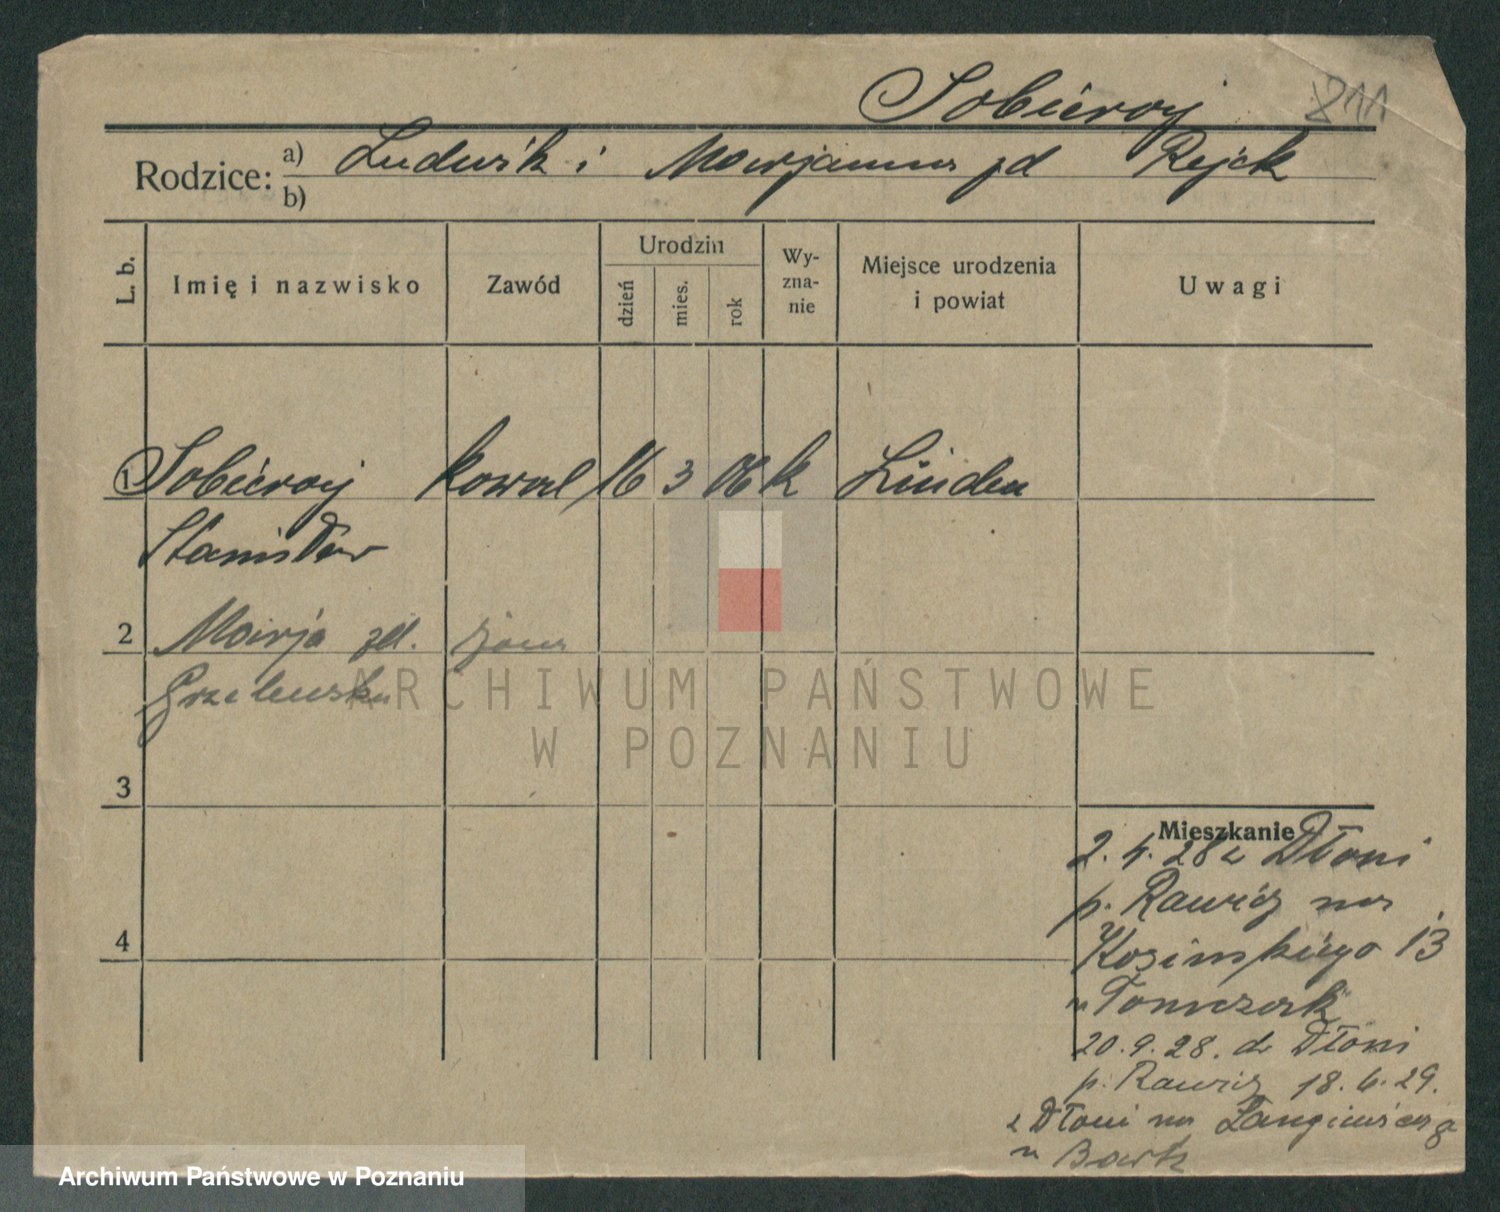 Sobieraj 811
Rodzice: a) Ludwik i Marjanna zd Rejek
b)
L. b. Imię i nazwisko Zawód Urodzin dzień mies. rok Wyznanie Miejsce urodzenia i powiat Uwagi
1 Sobieraj kowal 16 3 06 k Linden
Stanisław
2 Marja zd. żona
Grzelewska
3
4
Mieszkanie
2. 4. 28 z Dłoni
p. Rawicz na
13
u Tomczak
20. 9. 28. do Dłoni
p. Rawicz 18. 6. 29.
z Dłoni na Langiewicza 8
u Bartk
ARCHIWUM PAŃSTWOWE
W POZNANIU
Archiwum Państwowe w Poznaniu